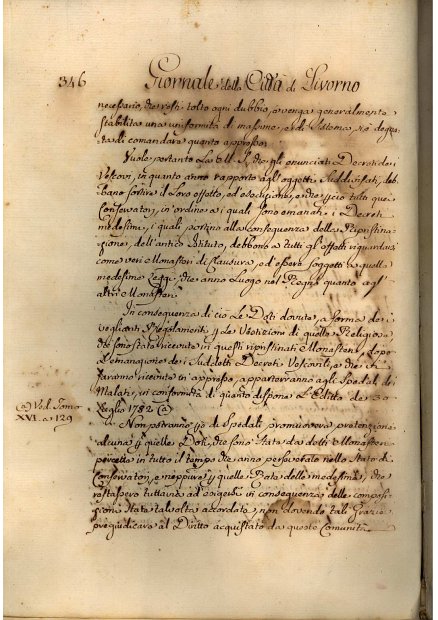 346 Giornale della Città di Livorno
necessario, che resti tolto ogni dubbio, e venga generalmente
stabilita una uniformità di massime, e di Sistema, si è degna-
ta di comandare quanto appresso.
Vuole pertanto La M. S. che gli enunciati Decreti dei
Vescovi, in quanto anno rapporto agl'oggetti Suddivisati, deb-
bano sortire il loro effetto, ed esecuzione, e che però tutti quei
Conservatori, in ordine a i quali sono emanati i Decreti
medesimi, i quali portino alla conseguenza della Ripristina-
zione, dell'antico istituto, debbono a tutti gl'effetti riguardarsi
come veri Monasteri di Clausura, ed essere soggetti a quelle
medesime Leggi, che anno Luogo nel Regno quanto agl'
altri Monasteri.
In conseguenza di ciò Le Doti dovute, a forma dei
veglianti Regolamenti per Le Vestizioni di quelle Religiose
che sono state ricevute in questi ripristinati Monasteri, dopo
l'emanazione dei Suddetti Decreti Vescovili, e che si
faranno ricevute in appresso, apparterranno agli Spedali dei
Malati, in conformità di quanto dispone L'Editto de 30
Luglio 1782 (a)
(a) Ved. Tomo
XVI. a 129
Non potranno però gli Spedali promuovere pretenzione
alcuna per quelle Doti, che sono State da detti Monasteri
percette in tutto il tempo che anno perseverato nello Stato di
Conservatori, e neppure per quelle Rate delle medesime, che
restassero tuttavia ad esigersi in conseguenza delle composi-
zioni State talvolta accordate, non dovendo tali Grazie
pregiudicare al Diritto acquistato da queste Comunità